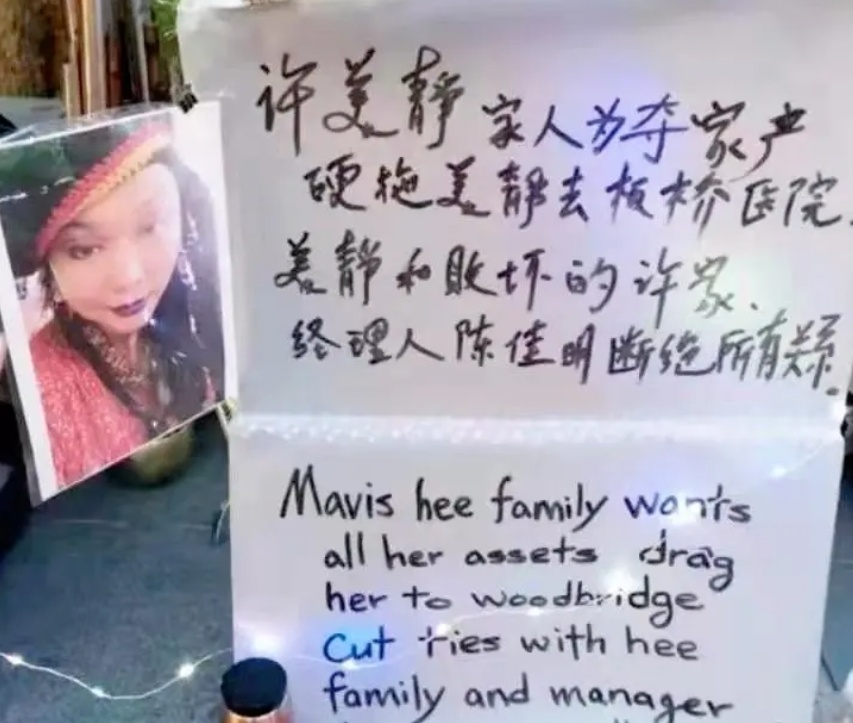 许美静 家人为夺家产
硬拖美静去板桥医院.
美静和败坏的许家.
终理人陈佳明断绝所有关系.
Mavis hee family wants
all her assets drag
her to woodbridge
Cut ties with hee
family and manager